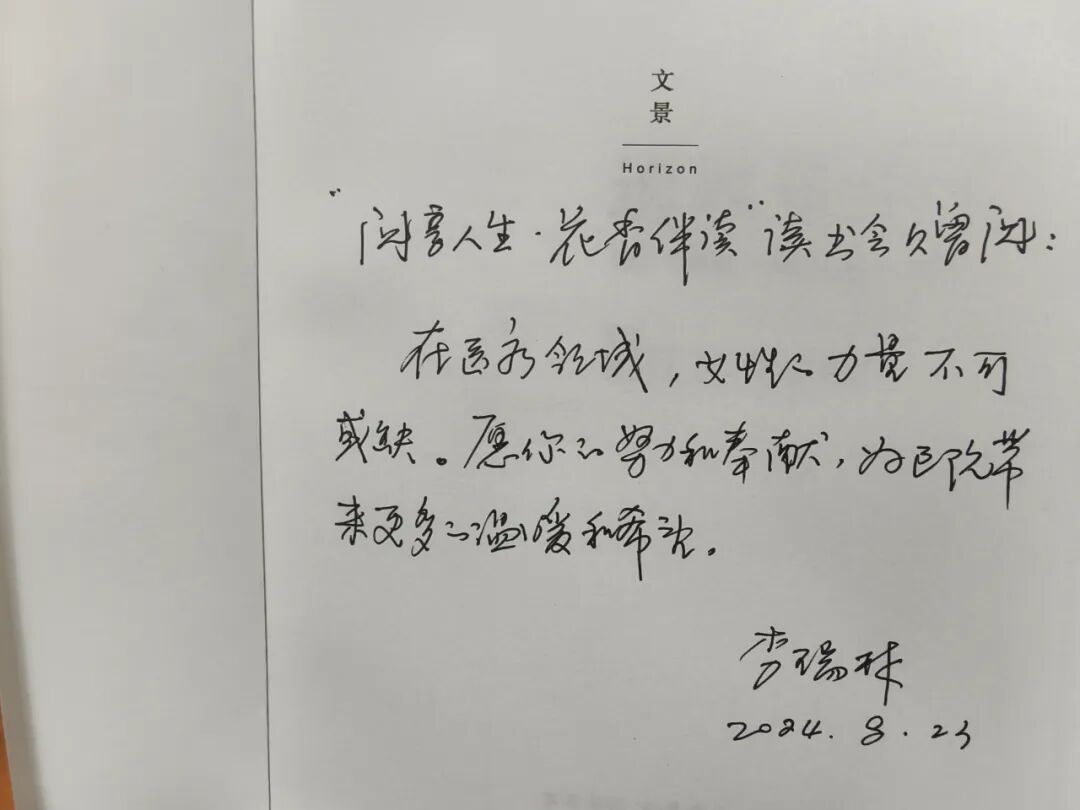 文景
Horizon
“阅享人生·花香伴读”读书会赠阅：
在医疗领域，女性的力量不可
或缺。愿你的努力和奉献，为医院带
来更多的温暖和希望。
李瑞林
2024.8.23